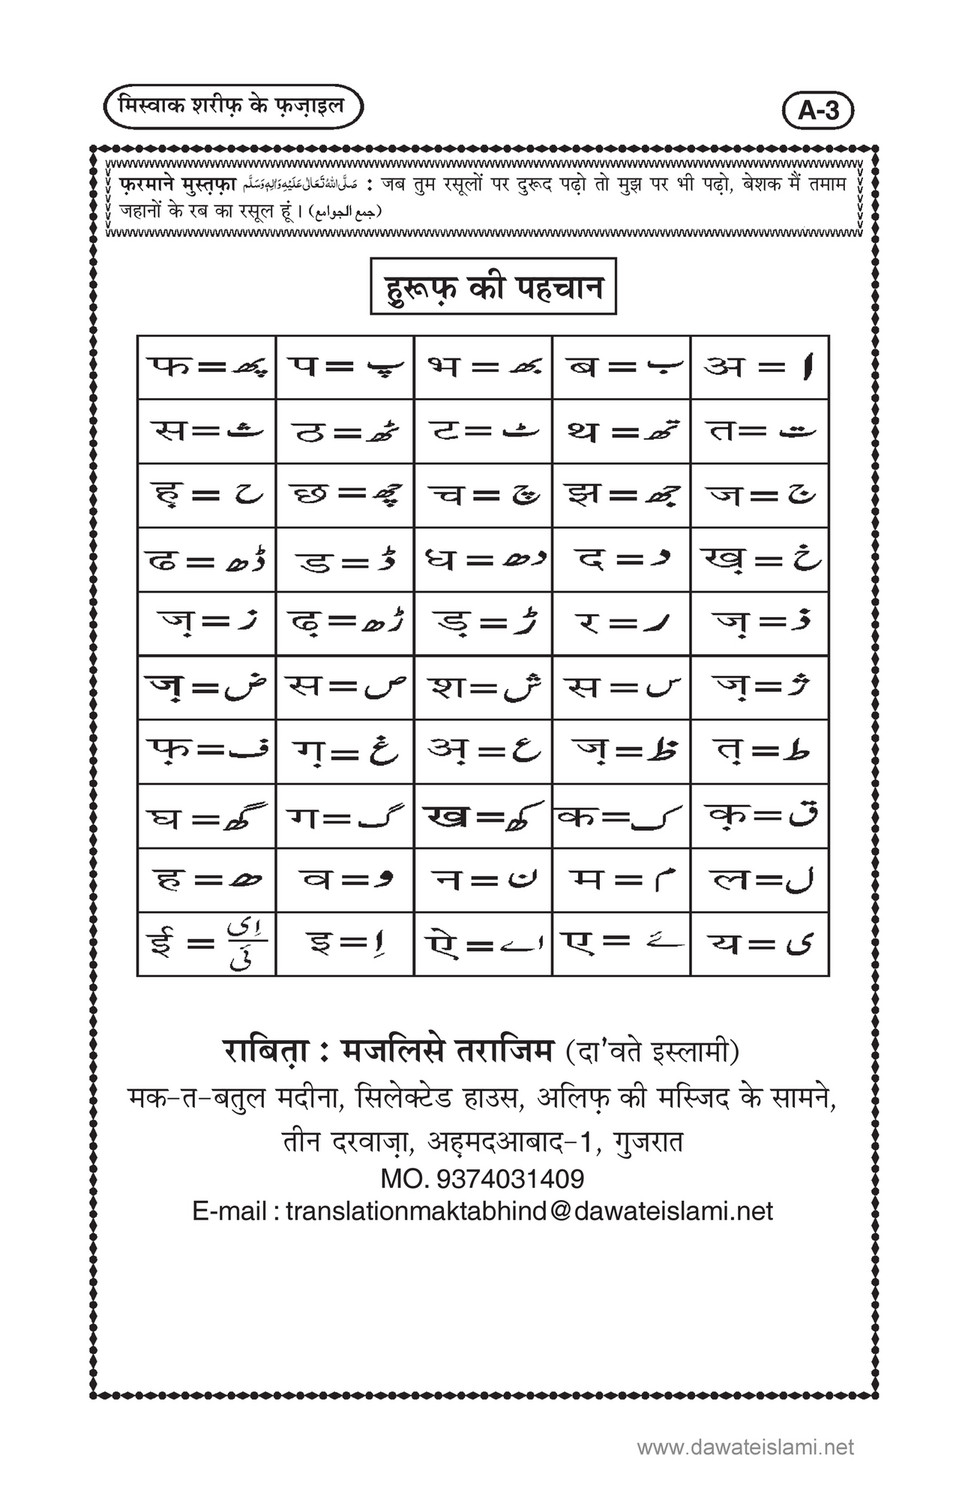 मिस्वाक शरीफ़ के फ़ज़ाइल
A-3
फ़रमाने मुस्त़फ़ा صَلَّى اللهُ تَعَالٰى عَلَيْهِ وَاٰلِهٖ وَسَلَّم : जब तुम रसूलों पर दुरूद पढ़ो तो मुझ पर भी पढ़ो, बेशक मैं तमाम
जहानों के रब का रसूल हूं। (جمع الجوامع)
हुरूफ़ की पहचान
फ=پھ प=پ भ=بھ ब=ب अ=ا
स=ث ठ=ٹھ ट=ٹ थ=تھ त=ت
ह़=ح छ=چھ च=چ झ=جھ ज=ج
ढ=ڈھ ड=ڈ ध=دھ द=د ख़=خ
ज़=ز ढ़=ڑھ ड़=ڑ र=ر ज़=ذ
ज़=ض स=ص श=ش स=س ज़=ژ
फ़=ف ग़=غ अ़=ع ज़=ظ त़=ط
घ=گھ ग=گ ख=کھ क=ک क़=ق
ह=ھ व=و न=ن म=م ल=ل
ई=اِی/ئی इ=اِ ऐ=اے ए=ئے य=ی
राबित़ा : मजलिसे तराजिम (दा'वते इस्लामी)
मक-त-बतुल मदीना, सिलेक्टेड हाउस, अलिफ़ की मस्जिद के सामने,
तीन दरवाज़ा, अह़मदआबाद-1, गुजरात
MO. 9374031409
E-mail : translationmaktabhind@dawateislami.net
www.dawateislami.net